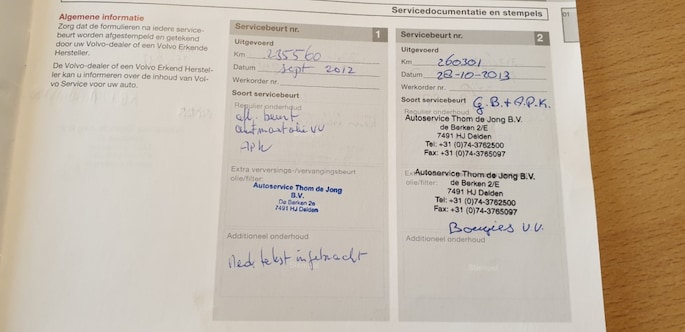 Servicedocumentatie en stempels
Algemene informatie
Zorg dat de formulieren na iedere service-
beurt worden afgestempeld en getekend
door uw Volvo-dealer of een Volvo Erkende
Hersteller.
De Volvo-dealer of een Volvo Erkend Herstel-
ler kan u informeren over de inhoud van Vol-
vo Service voor uw auto.
Servicebeurt nr. 1
Uitgevoerd
Km 235560
Datum sept 2012
Werkorder nr.
Soort servicebeurt
Regulier onderhoud
beurt
VV
APK
Extra verversings-/vervangingsbeurt
olie/filter:
Autoservice Thom de Jong
B.V.
De Berken 2e
7491 HJ Delden
Additioneel onderhoud
Ned. tekst ingebracht
Servicebeurt nr. 2
Uitgevoerd
Km 260301
Datum 28-10-2013
Werkorder nr.
Soort servicebeurt G.B.+A.P.K.
Regulier onderhoud
Autoservice Thom de Jong B.V.
de Berken 2/E
7491 HJ Delden
Tel: +31 (0)74-3762500
Fax: +31 (0)74-3765097
Autoservice Thom de Jong B.V.
olie/filter: de Berken 2/E
7491 HJ Delden
Tel: +31 (0)74-3762500
Fax: +31 (0)74-3765097
Bougies V.V.
Additioneel onderhoud